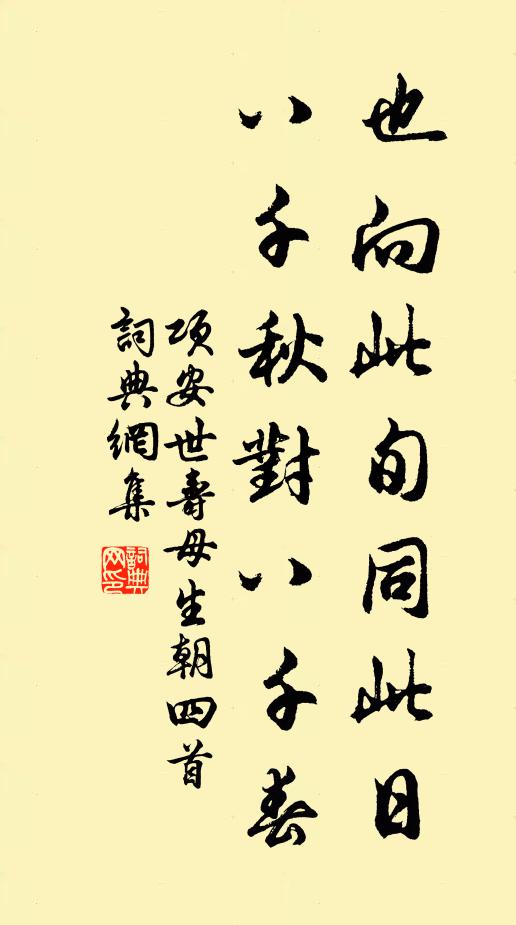 也向此旬同此日
八千秋對八千春
項安世壽母生朝四首
詞典網集
詞典網印